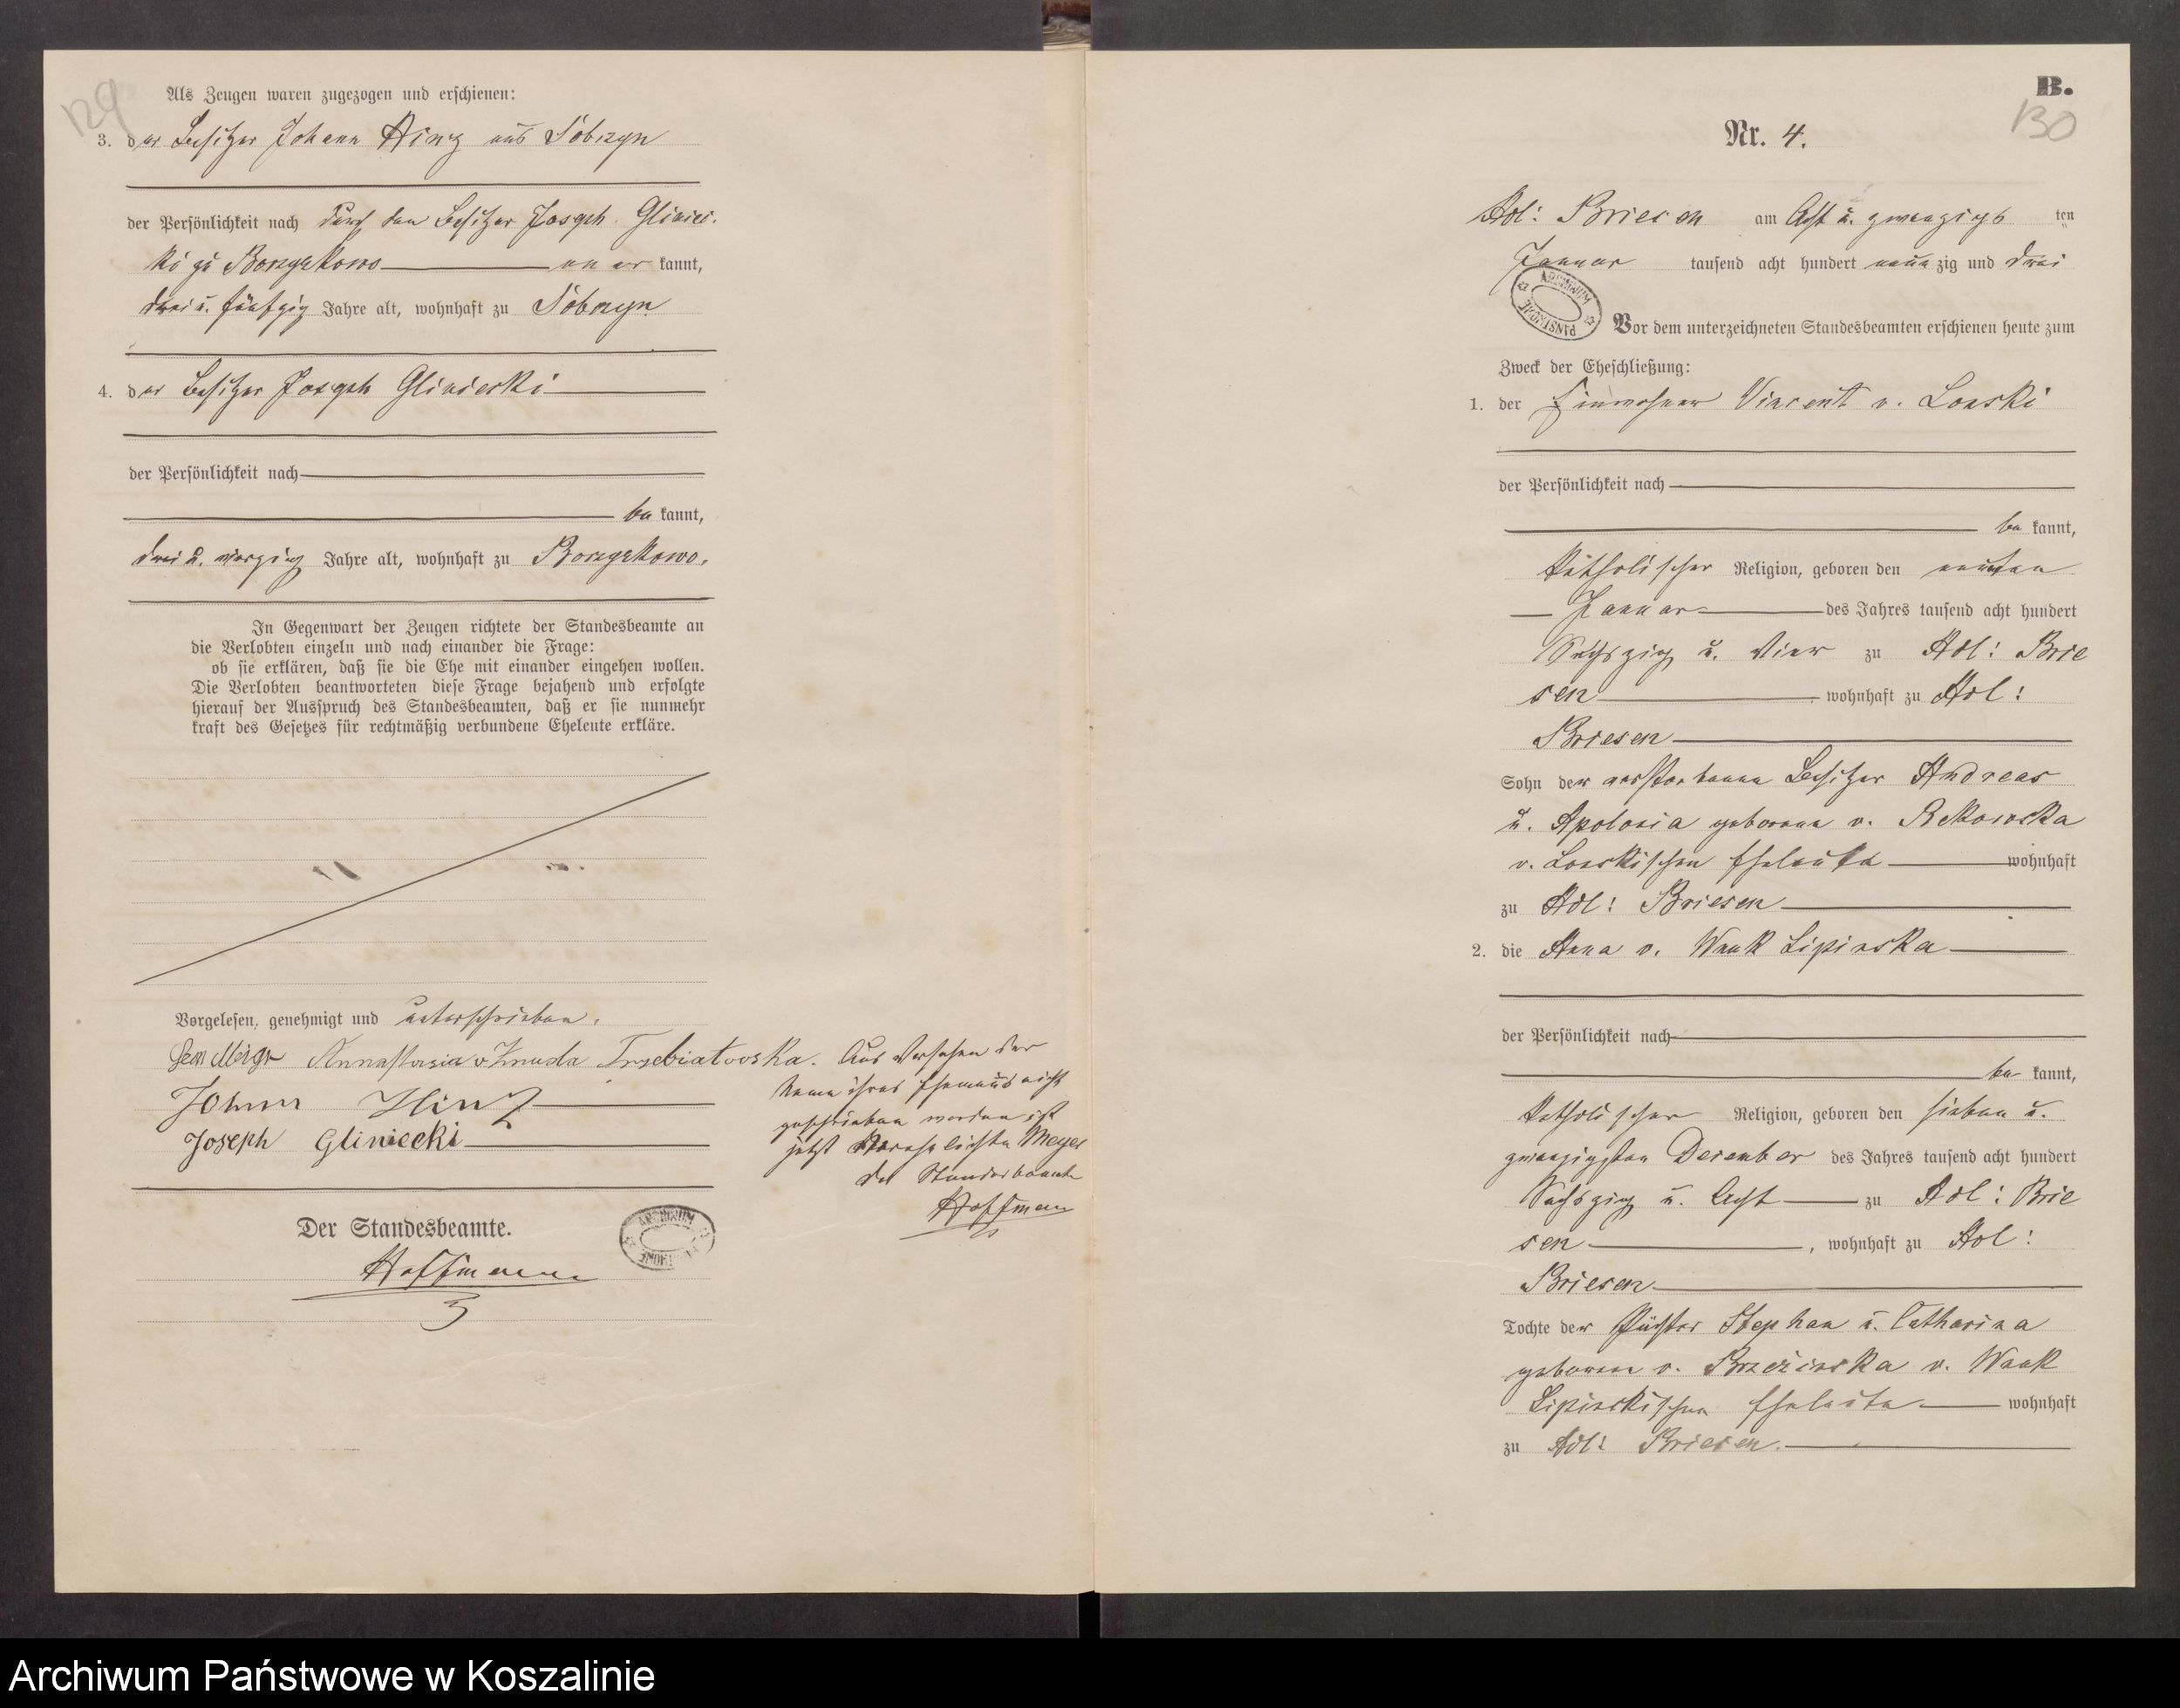 129
Als Zeugen waren zugezogen und erschienen:
3. der Besitzer Johann Hinz aus Sobczyn
der Persönlichkeit nach durch den Besitzer Joseph Gliniec-
ki zu Borzyskowo aner kannt,
drei u. fünfzig Jahre alt, wohnhaft zu Sobczyn
4. der Besitzer Joseph Gliniecki
der Persönlichkeit nach
be kannt,
drei u. vierzig Jahre alt, wohnhaft zu Borzyskowo.
In Gegenwart der Zeugen richtete der Standesbeamte an
die Verlobten einzeln und nach einander die Frage:
ob sie erklären, daß sie die Ehe mit einander eingehen wollen.
Die Verlobten beantworteten diese Frage bejahend und erfolgte
hierauf der Ausspruch des Standesbeamten, daß er sie nunmehr
kraft des Gesetzes für rechtmäßig verbundene Eheleute erkläre.
Vorgelesen, genehmigt und unterschrieben.
Annastasia v Zmuda Trzebiatowska. Aus Versehen der
Name ihres Ehemanns nicht
geschrieben worden ist
jetzt Meyer
Der Standesbeamte
Hoffmann
Johann Hinz
Joseph Gliniecki
Der Standesbeamte.
Hoffmann
B.
130
Nr. 4.
Adl: Briesen am Acht u. zwanzigs ten
Januar tausend acht hundert neun zig und drei
ARCHIWUM PAŃSTWOWE
Vor dem unterzeichneten Standesbeamten erschienen heute zum
Zweck der Eheschließung:
1. der Einwohner Vincent v. Lonski
der Persönlichkeit nach
be kannt,
katholischer Religion, geboren den neunten
Januar des Jahres tausend acht hundert
Sechszig u. Vier zu Adl: Brie
sen wohnhaft zu Adl:
Briesen
Sohn der verstorbenen Besitzer Andreas
u. Apolonia geborene v. Rekowska
v. Lonskischen Eheleute wohnhaft
zu Adl: Briesen
2. die Anna v. Wnuk Lipinska
der Persönlichkeit nach
be kannt,
katholischer Religion, geboren den sieben u.
zwanzigsten December des Jahres tausend acht hundert
Sechszig u. Acht zu Adl: Brie
sen , wohnhaft zu Adl:
Briesen
Tochte der Pächter Stephan u. Catharina
geborene v. Brzezinska v. Wnuk
Lipinskischen Eheleute wohnhaft
zu Adl: Briesen.
Archiwum Państwowe w Koszalinie